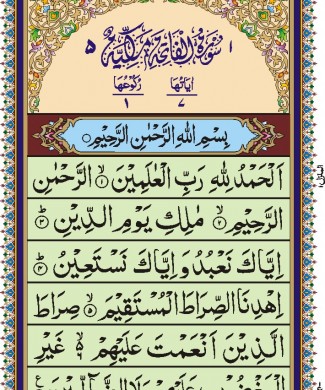 ١ سُوْرَةُ الْفَاتِحَةِ مَكِّيَّةٌ ٥
اٰيَاتُهَا رُكُوْعُهَا
٧ ١
بِسْمِ اللهِ الرَّحْمٰنِ الرَّحِيْمِ
اَلْحَمْدُ لِلّٰهِ رَبِّ الْعٰلَمِيْنَ ۙ﴿١﴾ الرَّحْمٰنِ
الرَّحِيْمِ ۙ﴿٢﴾ مٰلِكِ يَوْمِ الدِّيْنِ ؕ﴿٣﴾
اِيَّاكَ نَعْبُدُ وَ اِيَّاكَ نَسْتَعِيْنُ ؕ﴿٤﴾
اِهْدِنَا الصِّرَاطَ الْمُسْتَقِيْمَ ۙ﴿٥﴾ صِرَاطَ
الَّذِيْنَ اَنْعَمْتَ عَلَيْهِمْ ۙ۬﴿٦﴾ غَيْرِ
الْمَغْضُوْبِ عَلَيْهِمْ وَلَا الضَّآلِّيْنَ